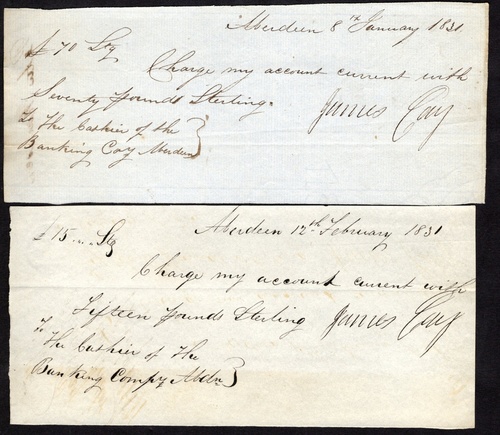 Aberdeen 8th January 1831
£ 70 Stg
Charge my account current with
Seventy pounds Sterling.
James Cay
To The Cashier of the
Banking Coy Aberdeen
£ 15 ... Stg
Aberdeen 12th February 1831
Charge my account current with
Fifteen pounds Sterling
James Cay
To
The Cashier of The
Banking Compy Abdn